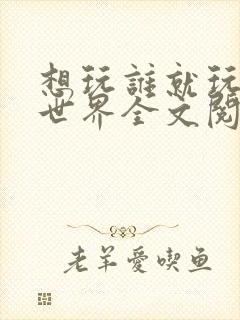 想玩誰就玩
世界全文閱
老羊愛喫鱼